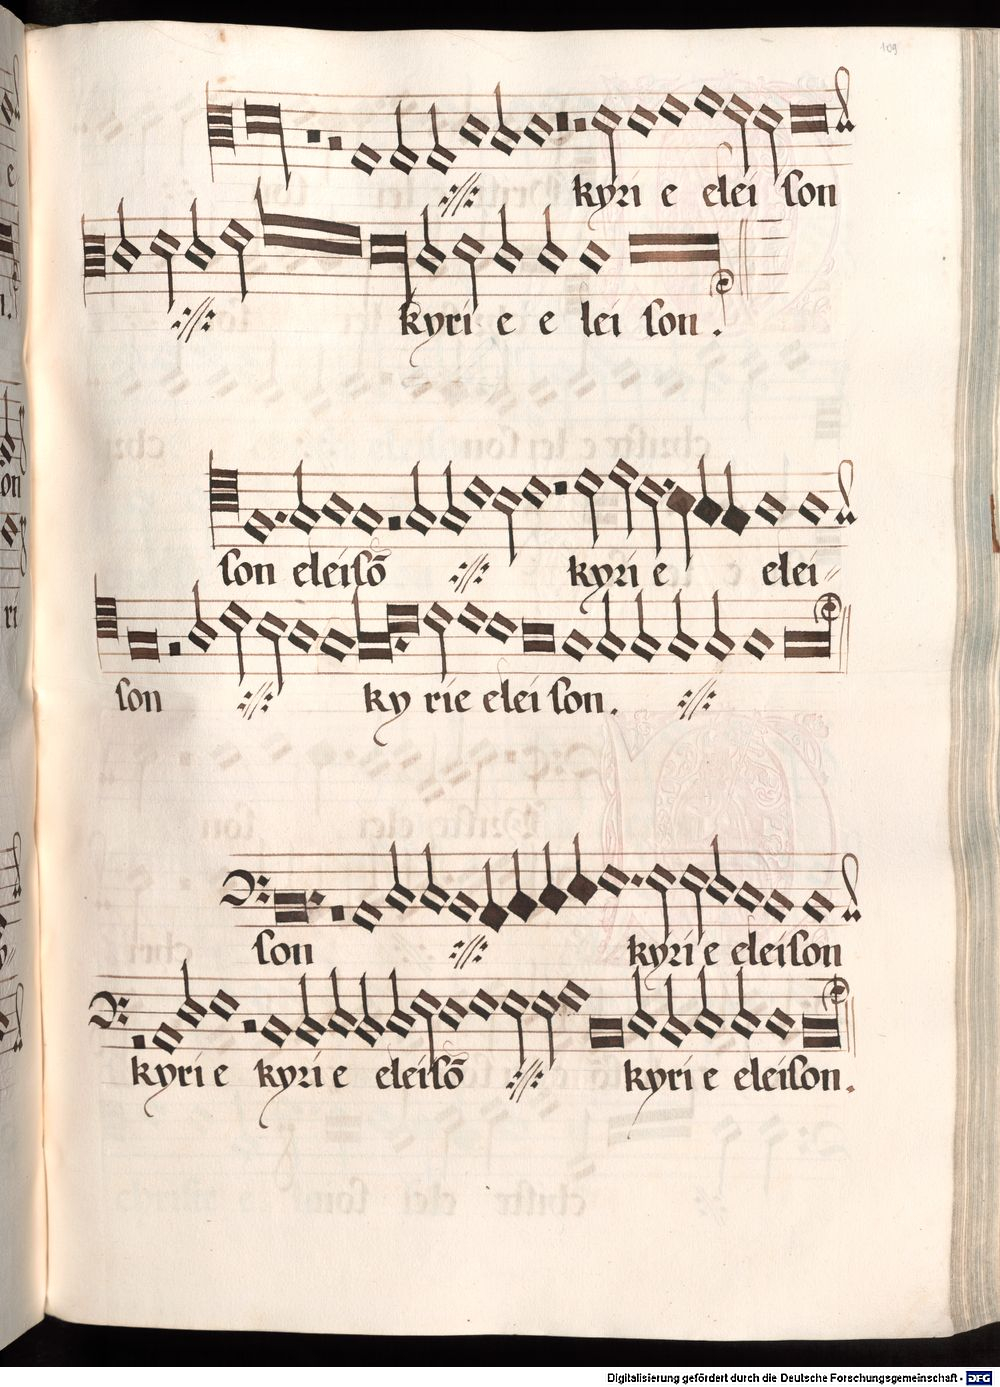 109
kyri e elei son
kyri e e lei son.
son eleisō kyri e e elei
son ky rie elei son.
son kyri e eleison
kyri e kyri e eleisō kyri e eleison.
Digitalisierung gefördert durch die Deutsche Forschungsgemeinschaft - DFG